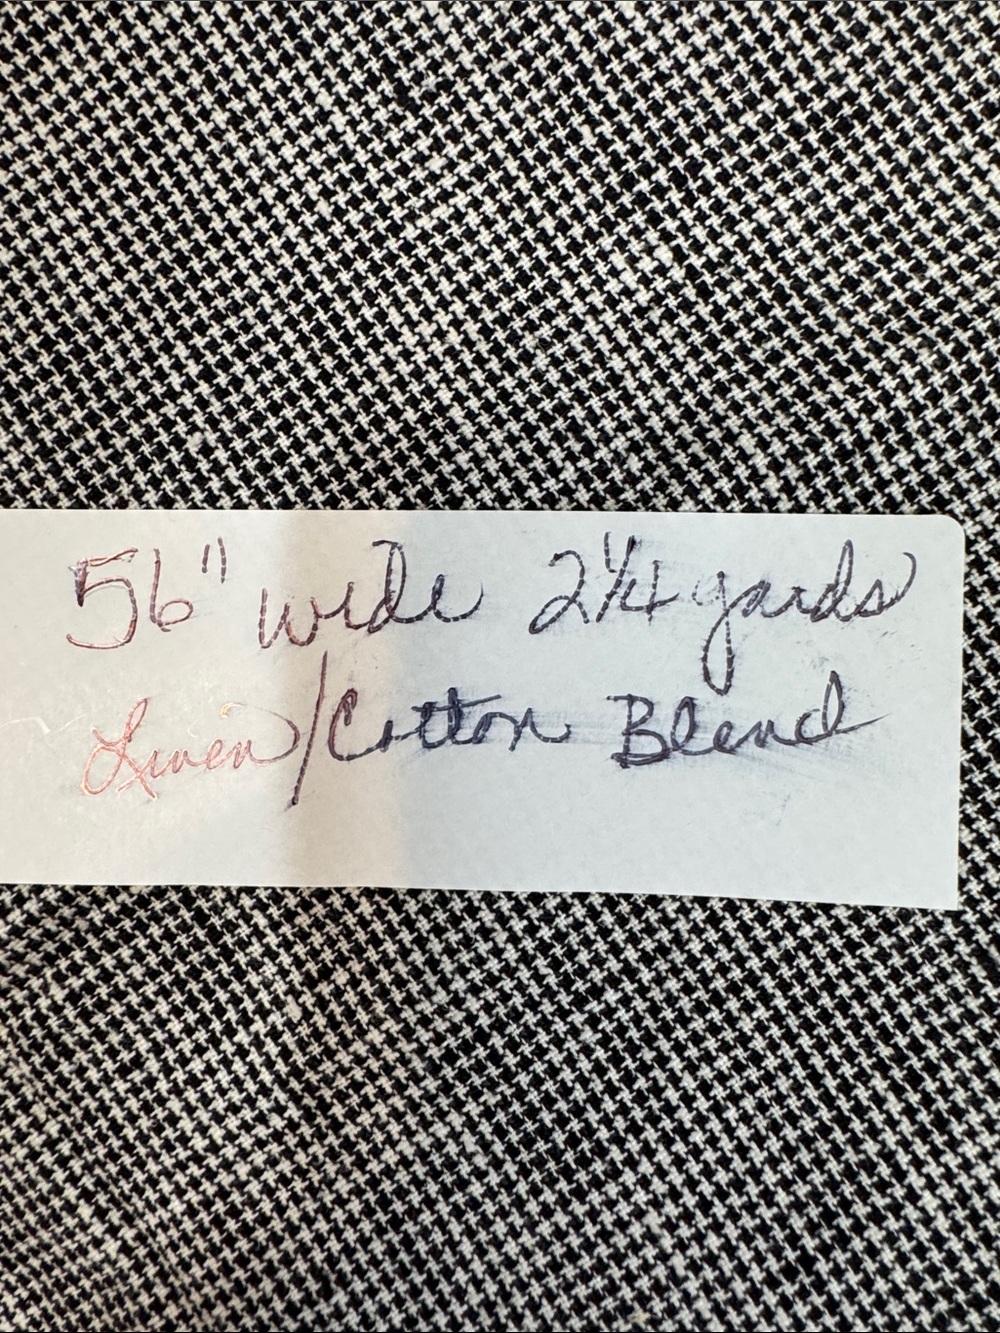 56" wide 2¼ yards
Linen/Cotton Blend